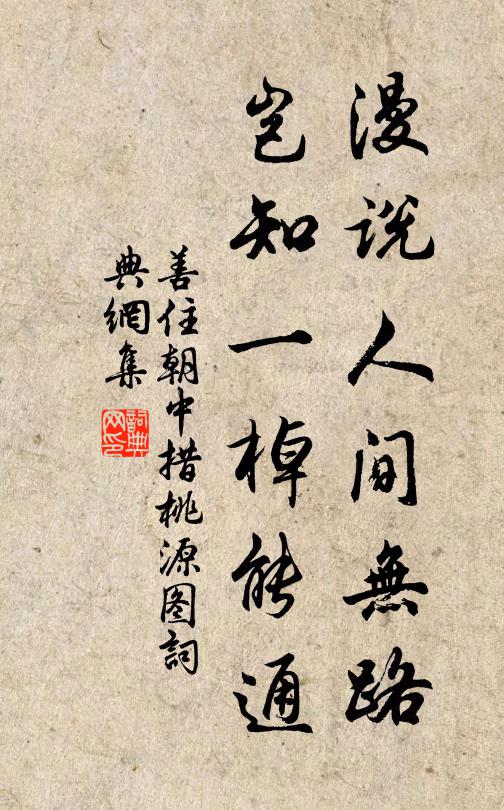 漫说人间無路
岂知一棹能通
善住朝中措桃源图詞
典網集
詞典网印